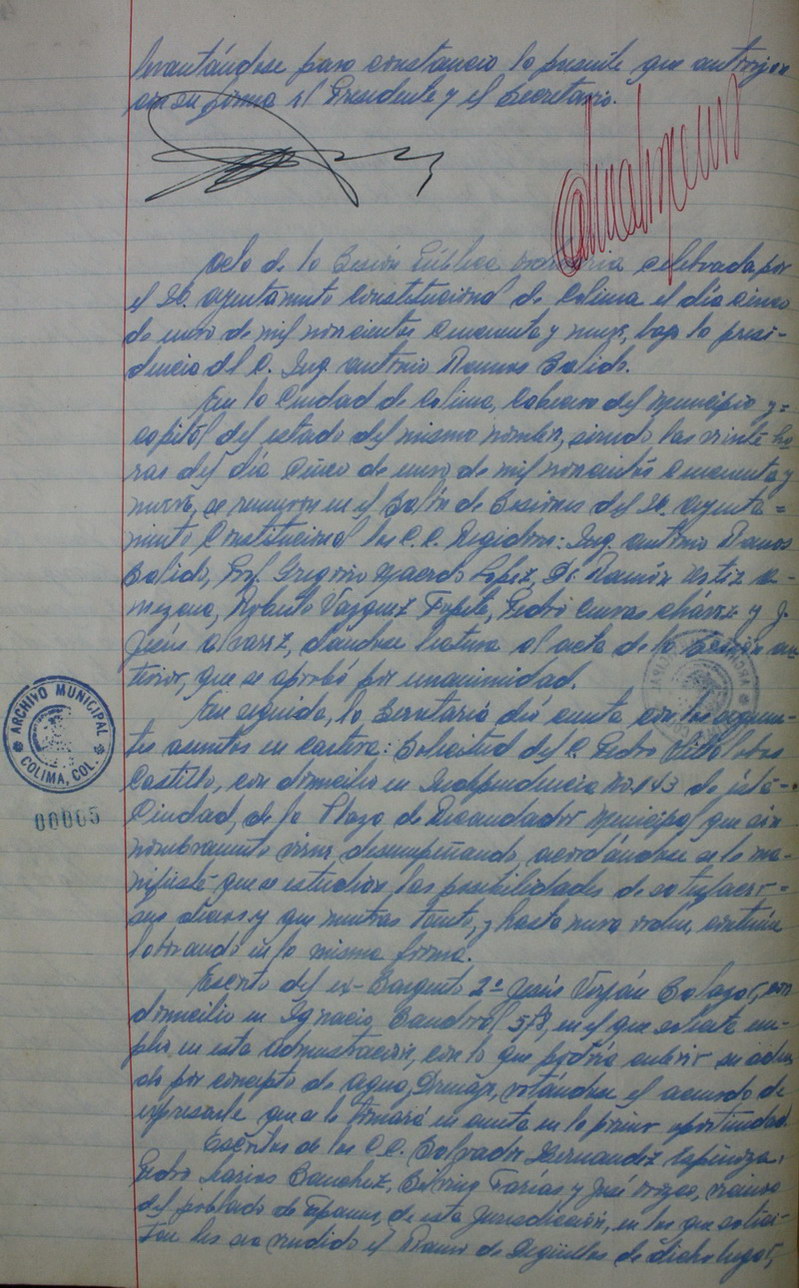 levantándose para constancia la presente que autorizan
con su firma el Presidente y el Secretario.
Acta de la Sesión Pública ordinaria celebrada por
el H. Ayuntamiento Constitucional de Colima el día cinco
de enero de mil novecientos cincuenta y nueve, bajo la presi-
dencia del C. Ing. Antonio Ramos Salido.
En la Ciudad de Colima, Cabecera del Municipio y=
capital del estado del mismo nombre, siendo las veinte ho-
ras del día cinco de enero de mil novecientos cincuenta y
nueve, se reunieron en el Salón de Sesiones del H. Ayunta=
miento Constitucional los C.C. Regidores: Ing. Antonio Ramos
Salido, Prof. Gregorio Macedo López, Dr. Ramón
Roberto Vazquez Pedro Cuevas Chávez y J.
Jesús Alvarez, dandose lectura al acta de la Sesión an-
terior, que se aprobó por unanimidad.
En seguida, la Secretaría dió cuenta con los siguien-
tes asuntos en cartera: Solicitud del C. Pedro Villalobos
Castillo, con domicilio en Independencia No. 143 de ésta-
Ciudad, de la Plaza de Recaudador Municipal que sin
nombramiento viene desempeñando, acordándose se le ma-
nifieste que se estudian las posibilidades de satisfacer-
sus deseos y que mientras tanto, y hasta nueva orden, continúe
laborando en la misma forma.
Escrito del ex-Sargento 2º Jesús Salazar, con
domicilio en Ignacio Sandoval 578, en el que solicita em-
pleo en esta administración, con lo que podría cubrir su adeu-
do por concepto de agua y drenaje, votándose el acuerdo de
expresarle que se le tomará en cuenta en la primer oportunidad.
Escritos de los C.C. Salvador Hernandez Espinoza,
Pedro Larios Sanchez, Farías y José vecinos
del poblado de Tepames, de esta Jurisdicción, en los que solici-
tan les sea vendido el Ramo de Degüellos de dicho lugar,
ARCHIVO MUNICIPAL
COLIMA, COL.
00005